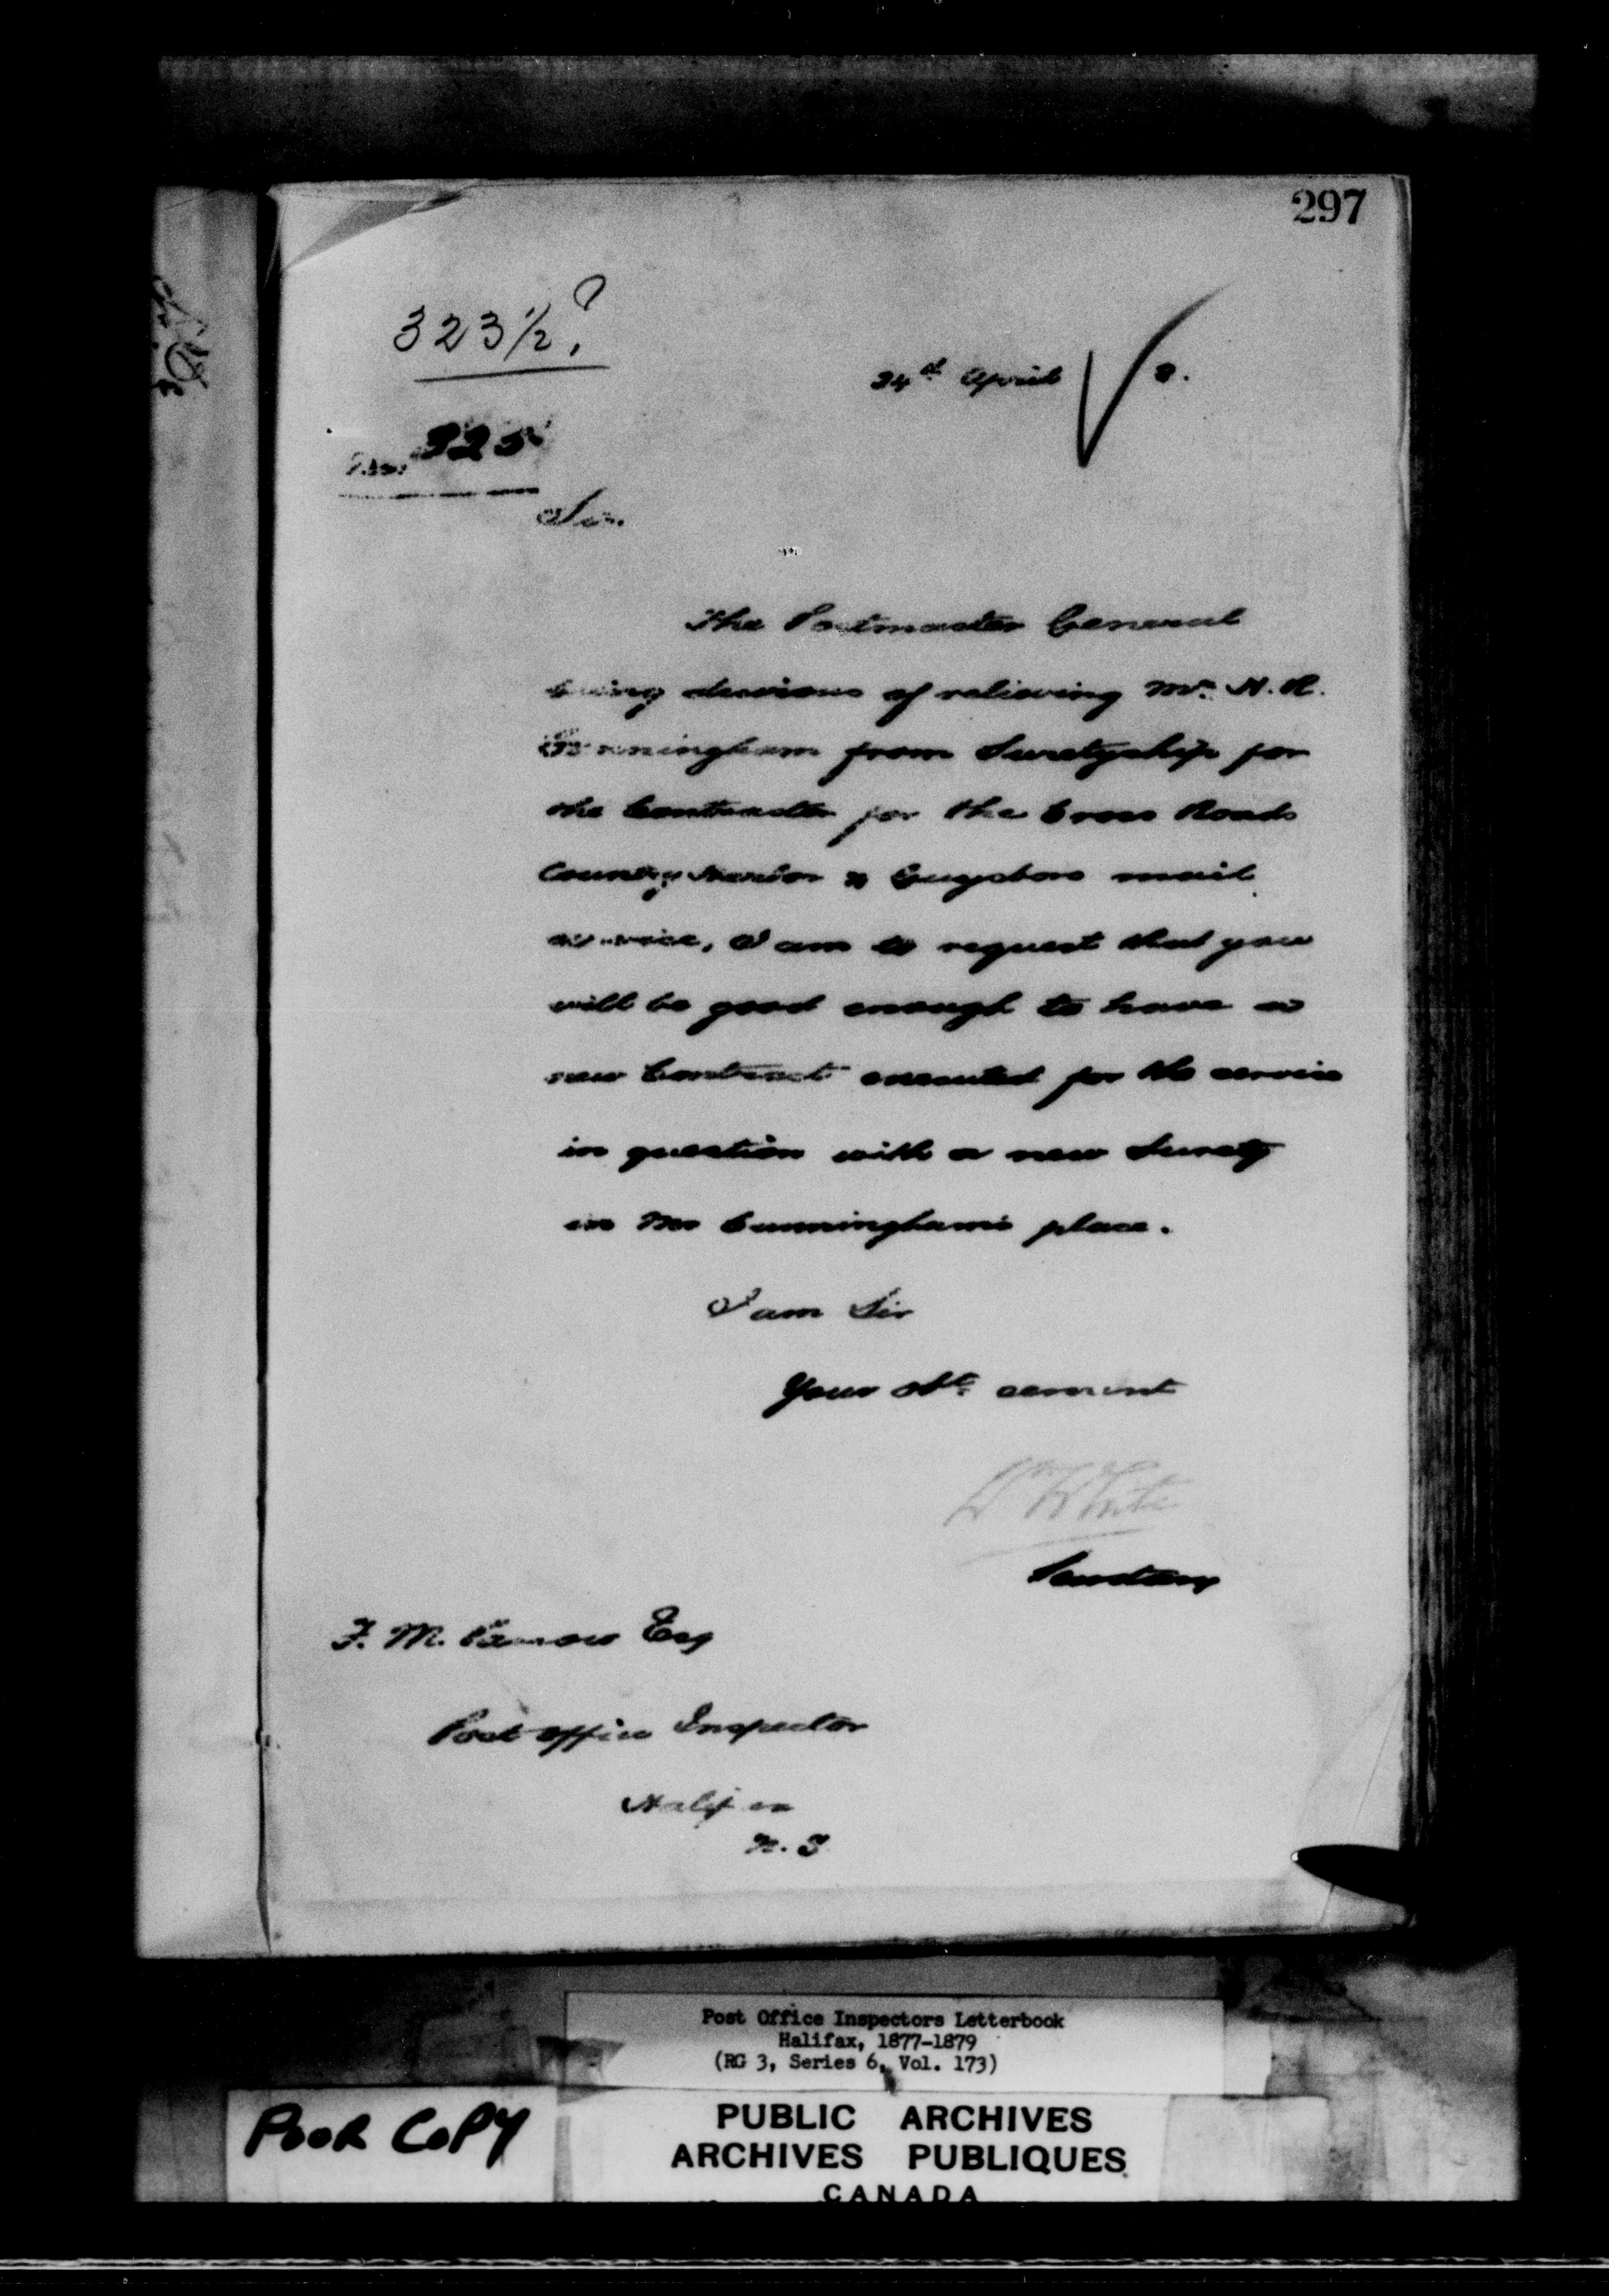 297
323½?
24th April 8.
No. 325
Sir.
The Postmaster General
being desirous of relieving Mr. H. R.
Cunningham from Suretyship for
the Contractor for the Cross Roads
Country Harbor & Guysboro mail
service, I am to request that you
will be good enough to have a
new Contract executed for the service
in question with a new Surety
in Mr Cunningham's place.
I am Sir
Your obt. servant
Wm White
Secretary
F. M. Passow Esq
Post Office Inspector
Halifax
N. S
Post Office Inspectors Letterbook
Halifax, 1877-1879
(RG 3, Series 6, Vol. 173)
POOR COPY
PUBLIC ARCHIVES
ARCHIVES PUBLIQUES
CANADA